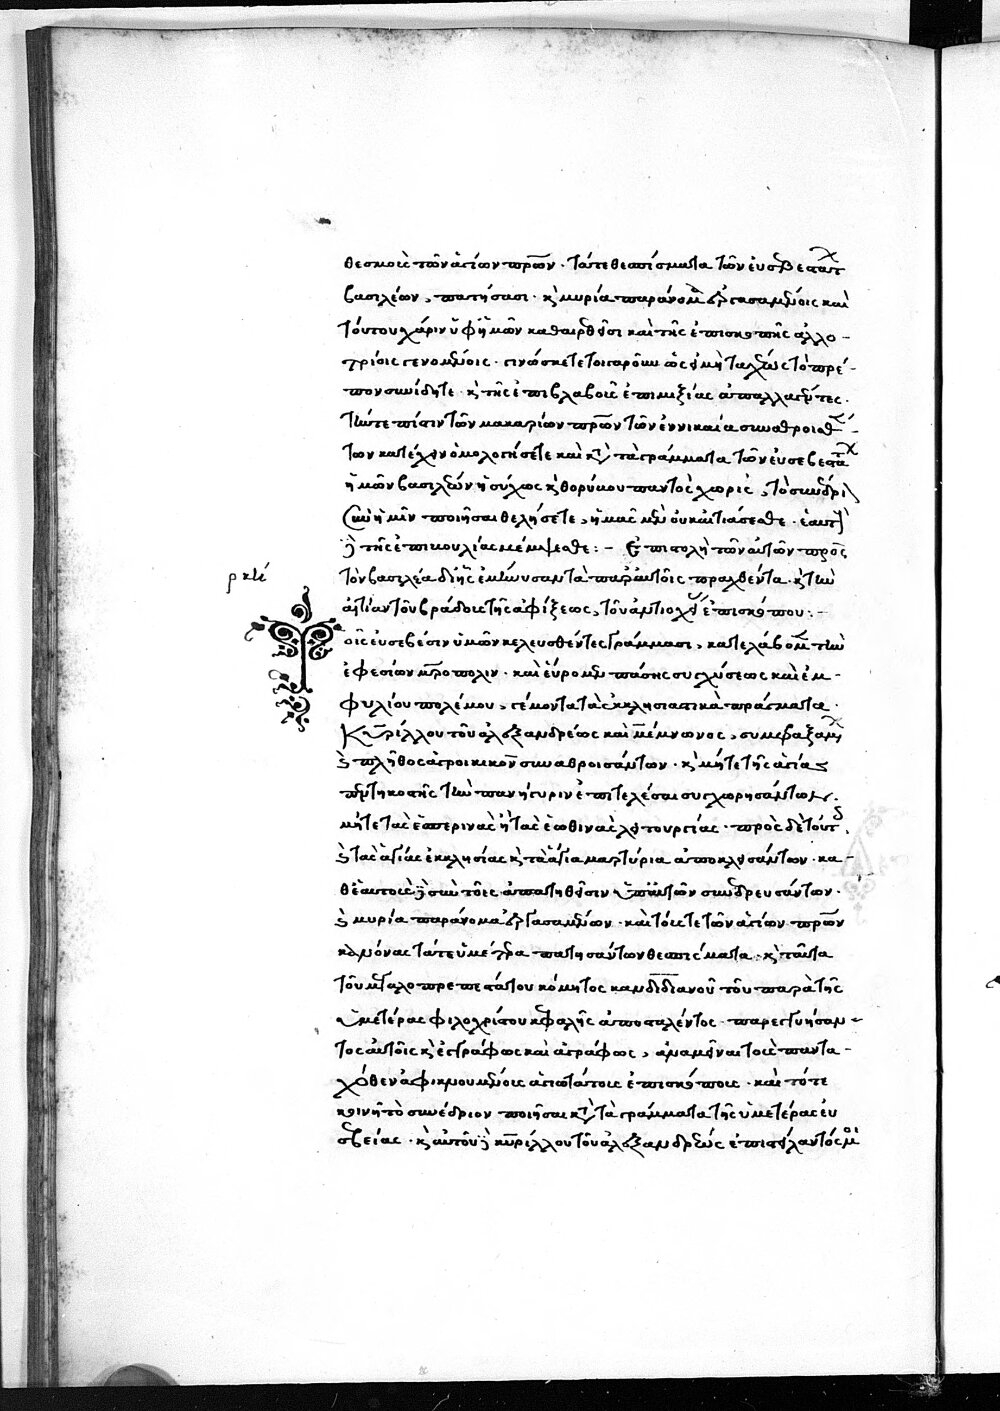 θεσμοῖς τῶν ἁγίων πρῶν · τά τε θεσπίσματα τῶν εὐσεβεστάτ
βασιλέων, πατήσασι · κ μυρία παράνομ ἐργασαμένοις καὶ
τούτου χάριν ὑφ ἡμῶν καθαιρεθεῖσι καὶ τῆς ἐπισκοπῆς ἀλλο-
τρίοις γενομένοις · γινώσκετε τοιγαροῦν ὡς εἰ μὴ ταχέως τὸ πρέ-
πον συνίδητε · κ τῆς ἐπιβλαβοῦς ἐπιμιξίας ἀπαλλαγέντες ·
τήν τε πίστιν τῶν μακαρίων πρῶν τῶν ἐν νικαία συναθροισθέ-
των κατέχειν ὁμολογήσετε καὶ κατὰ τὰ γράμματα τῶν εὐσεβεστά
ἡμῶν βασιλέων ἡσύχως κ θορύβου παντὸς χωρὶς, τὸ συνέδρι
ἡμῖν ποιῆσαι θελήσετε, ἡμᾶς μὲν οὐκ αἰτιάσεσθε · ἑαυτ
τῆς ἐπικουλίας μέμψεσθε :- Ἐπιστολὴ τῶν αὐτῶν πρὸς
τὸν βασιλέα δι ἧς ἐμήνυσαν τὰ παρ αὐτοῖς πραχθέντα · κ τὴν
αἰτίαν τοῦ βράδους τῆς ἀφίξεως, τοῦ ἀντιοχεί ἐπισκόπου :-
ρκιέ
Τοῖς εὐσεβέσιν ὑμῶν κελευσθέντες γράμμασι, κατελάβομ τὴν
ἐφεσίων μρόπολιν · καὶ εὕρομεν πάσης συγχύσεως καὶ ἐμ-
φυλίου πολέμου, γέμοντα τὰ ἐκκλησιαστικὰ πράγματα ·
Κυρίλλου τοῦ ἀλεξανδρέως καὶ μέμνωνος, συμφραξαμ
κ πλῆθος ἀγροικικὸν συναθροισάντων · κ μήτε τῆς ἁγίας
πεντηκοστῆς τὴν πανήγυριν ἐπιτελέσαι συγχωρησάντων ·
μήτε τὰς ἑσπερινὰς ἢ τὰς ἑωθινὰς λειτουργίας · πρὸς δὲ τούτ
κ τὰς ἁγίας ἐκκλησίας κ τὰ ἅγια μαρτύρια ἀποκλεισάντων · κα-
θ ἑαυτοὺς σὺν τοῖς ἀπατηθεῖσιν ὑπ αὐτῶν συνεδρευσάντων ·
κ μυρία παράνομα ἐργασαμένων · καὶ τούς τε τῶν ἁγίων πρῶν
κανόνας τά τε ὑμέτερα πατησάντων θεσπίσματα · κ ταῦτα
τοῦ μεγαλοπρεπεστάτου κόμητος κανδιδιανοῦ τοῦ παρὰ τῆς
ὑμετέρας φιλοχρίστου κεφαλῆς ἀποσταλέντος · παρεγγυήσαν-
τος αὐτοῖς κ ἐγγράφως καὶ ἀγράφως, ἀναμεῖναι τοὺς παντα-
χόθεν ἀφικνουμένους ἁγιωτάτους ἐπισκόπους · καὶ τότε
κοινῇ τὸ συνέδριον ποιῆσαι κατὰ τὰ γράμματα τῆς ὑμετέρας εὐ
σεβείας · κ αὐτοῦ κυρίλλου τοῦ ἀλεξανδρέως ἐπιστείλαντός μ